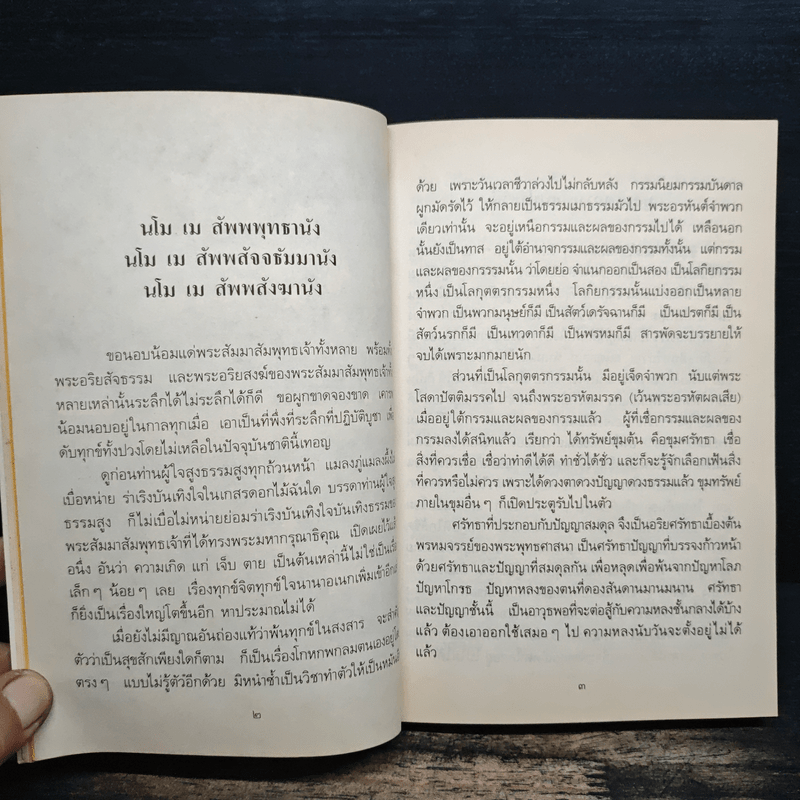 นโม เม สัพพพุทธานัง
นโม เม สัพพสัจจธัมมานัง
นโม เม สัพพสังฆานัง
ขอนอบน้อมแด่พระสัมมาสัมพุทธเจ้าทั้งหลาย พร้อมทั้ง
พระอริยสัจธรรม และพระอริยสงฆ์ของพระสัมมาสัมพุทธเจ้าทั้ง
หลายเหล่านั้นระลึกได้ไม่ระลึกได้ก็ดี ขอผูกขาดจองขาด
น้อมนอบอยู่ในกาลทุกเมื่อ เอาเป็นที่พึ่งที่ระลึกที่ปฏิบัติบูชา
ดับทุกข์ทั้งปวงโดยไม่เหลือในปัจจุบันชาตินี้เทอญ
ดูก่อนท่านผู้ใจสูงธรรมสูงทุกถ้วนหน้า แมลงภู่แมลงผึ้ง
เบื่อหน่าย ร่าเริงบันเทิงใจในเกสรดอกไม้ฉันใด บรรดาท่านผู้ใจ
ธรรมสูง ก็ไม่เบื่อไม่หน่ายย่อมร่าเริงบันเทิงใจบันเทิงธรรม
พระสัมมาสัมพุทธเจ้าที่ได้ทรงพระมหากรุณาธิคุณ เปิดเผยไว้
อนึ่ง อันว่า ความเกิด แก่ เจ็บ ตาย เป็นต้นเหล่านี้ไม่ใช่เป็น
เล็กๆ น้อยๆ เลย เรื่องทุกข์จิตทุกข์ใจนานาอเนกเพิ่มเข้าอีก
ก็ยิ่งเป็นเรื่องใหญ่โตขึ้นอีก หาประมาณไม่ได้
เมื่อยังไม่มีญาณอันถ่องแท้ว่าพ้นทุกข์ในสงสาร จะสำคัญ
ตัวว่าเป็นสุขสักเพียงใดก็ตาม ก็เป็นเรื่องโกหกพกลมตนเองอยู่
ตรงๆ แบบไม่รู้ตัวอีกด้วย มิหนำซ้ำเป็นวิชาทำตัวให้เป็นหมัน
๒
ด้วย เพราะวันเวลาชีวาล่วงไปไม่กลับหลัง กรรมนิยมกรรมบันดาล
ผูกมัดรัดไว้ ให้กลายเป็นธรรมเมาธรรมมัวไป พระอรหันต์จำพวก
เดียวเท่านั้น จะอยู่เหนือกรรมและผลของกรรมไปได้ เหลือนอก
นั้นยังเป็นทาส อยู่ใต้อำนาจกรรมและผลของกรรมทั้งนั้น แต่กรรม
และผลของกรรมนั้น ว่าโดยย่อ จำแนกออกเป็นสอง เป็นโลกิยกรรม
หนึ่ง เป็นโลกุตตรกรรมหนึ่ง โลกิยกรรมนั้นแบ่งออกเป็นหลาย
จำพวก เป็นพวกมนุษย์ก็มี เป็นสัตว์เดรัจฉานก็มี เป็นเปรตก็มี เป็น
สัตว์นรกก็มี เป็นเทวดาก็มี เป็นพรหมก็มี สารพัดจะบรรยายให้
จบได้เพราะมากมายนัก
ส่วนที่เป็นโลกุตตรกรรมนั้น มีอยู่เจ็ดจำพวก นับแต่พระ
โสดาปัตติมรรคไป จนถึงพระอรหัตมรรค (เว้นพระอรหัตผลเสีย)
เมื่ออยู่ใต้กรรมและผลของกรรมแล้ว ผู้ที่เชื่อกรรมและผลของ
กรรมลงได้สนิทแล้ว เรียกว่า ได้ทรัพย์ขุมต้น คือขุมศรัทธา เชื่อ
สิ่งที่ควรเชื่อ เชื่อว่าทำดีได้ดี ทำชั่วได้ชั่ว และก็จะรู้จักเลือกเฟ้นสิ่ง
ที่ควรหรือไม่ควร เพราะได้ดวงตาดวงปัญญาดวงธรรมแล้ว ขุมทรัพย์
ภายในขุมอื่นๆ ก็เปิดประตูรับไปในตัว
ศรัทธาที่ประกอบกับปัญญาสมดุล จึงเป็นอริยศรัทธาเบื้องต้น
พรหมจรรย์ของพระพุทธศาสนา เป็นศรัทธาปัญญาที่บรรจงก้าวหน้า
ด้วยศรัทธาและปัญญาที่สมดุลกัน เพื่อหลุดเพื่อพ้นจากปัญหาโลภ
ปัญหาโกรธ ปัญหาหลงของตนที่ดองสันดานมานมนาน ศรัทธา
และปัญญาชั้นนี้ เป็นอาวุธพอที่จะต่อสู้กับความหลงชั้นกลางได้บ้าง
แล้ว ต้องเอาออกใช้เสมอๆ ไป ความหลงนับวันจะตั้งอยู่ไม่ได้
แล้ว
๓